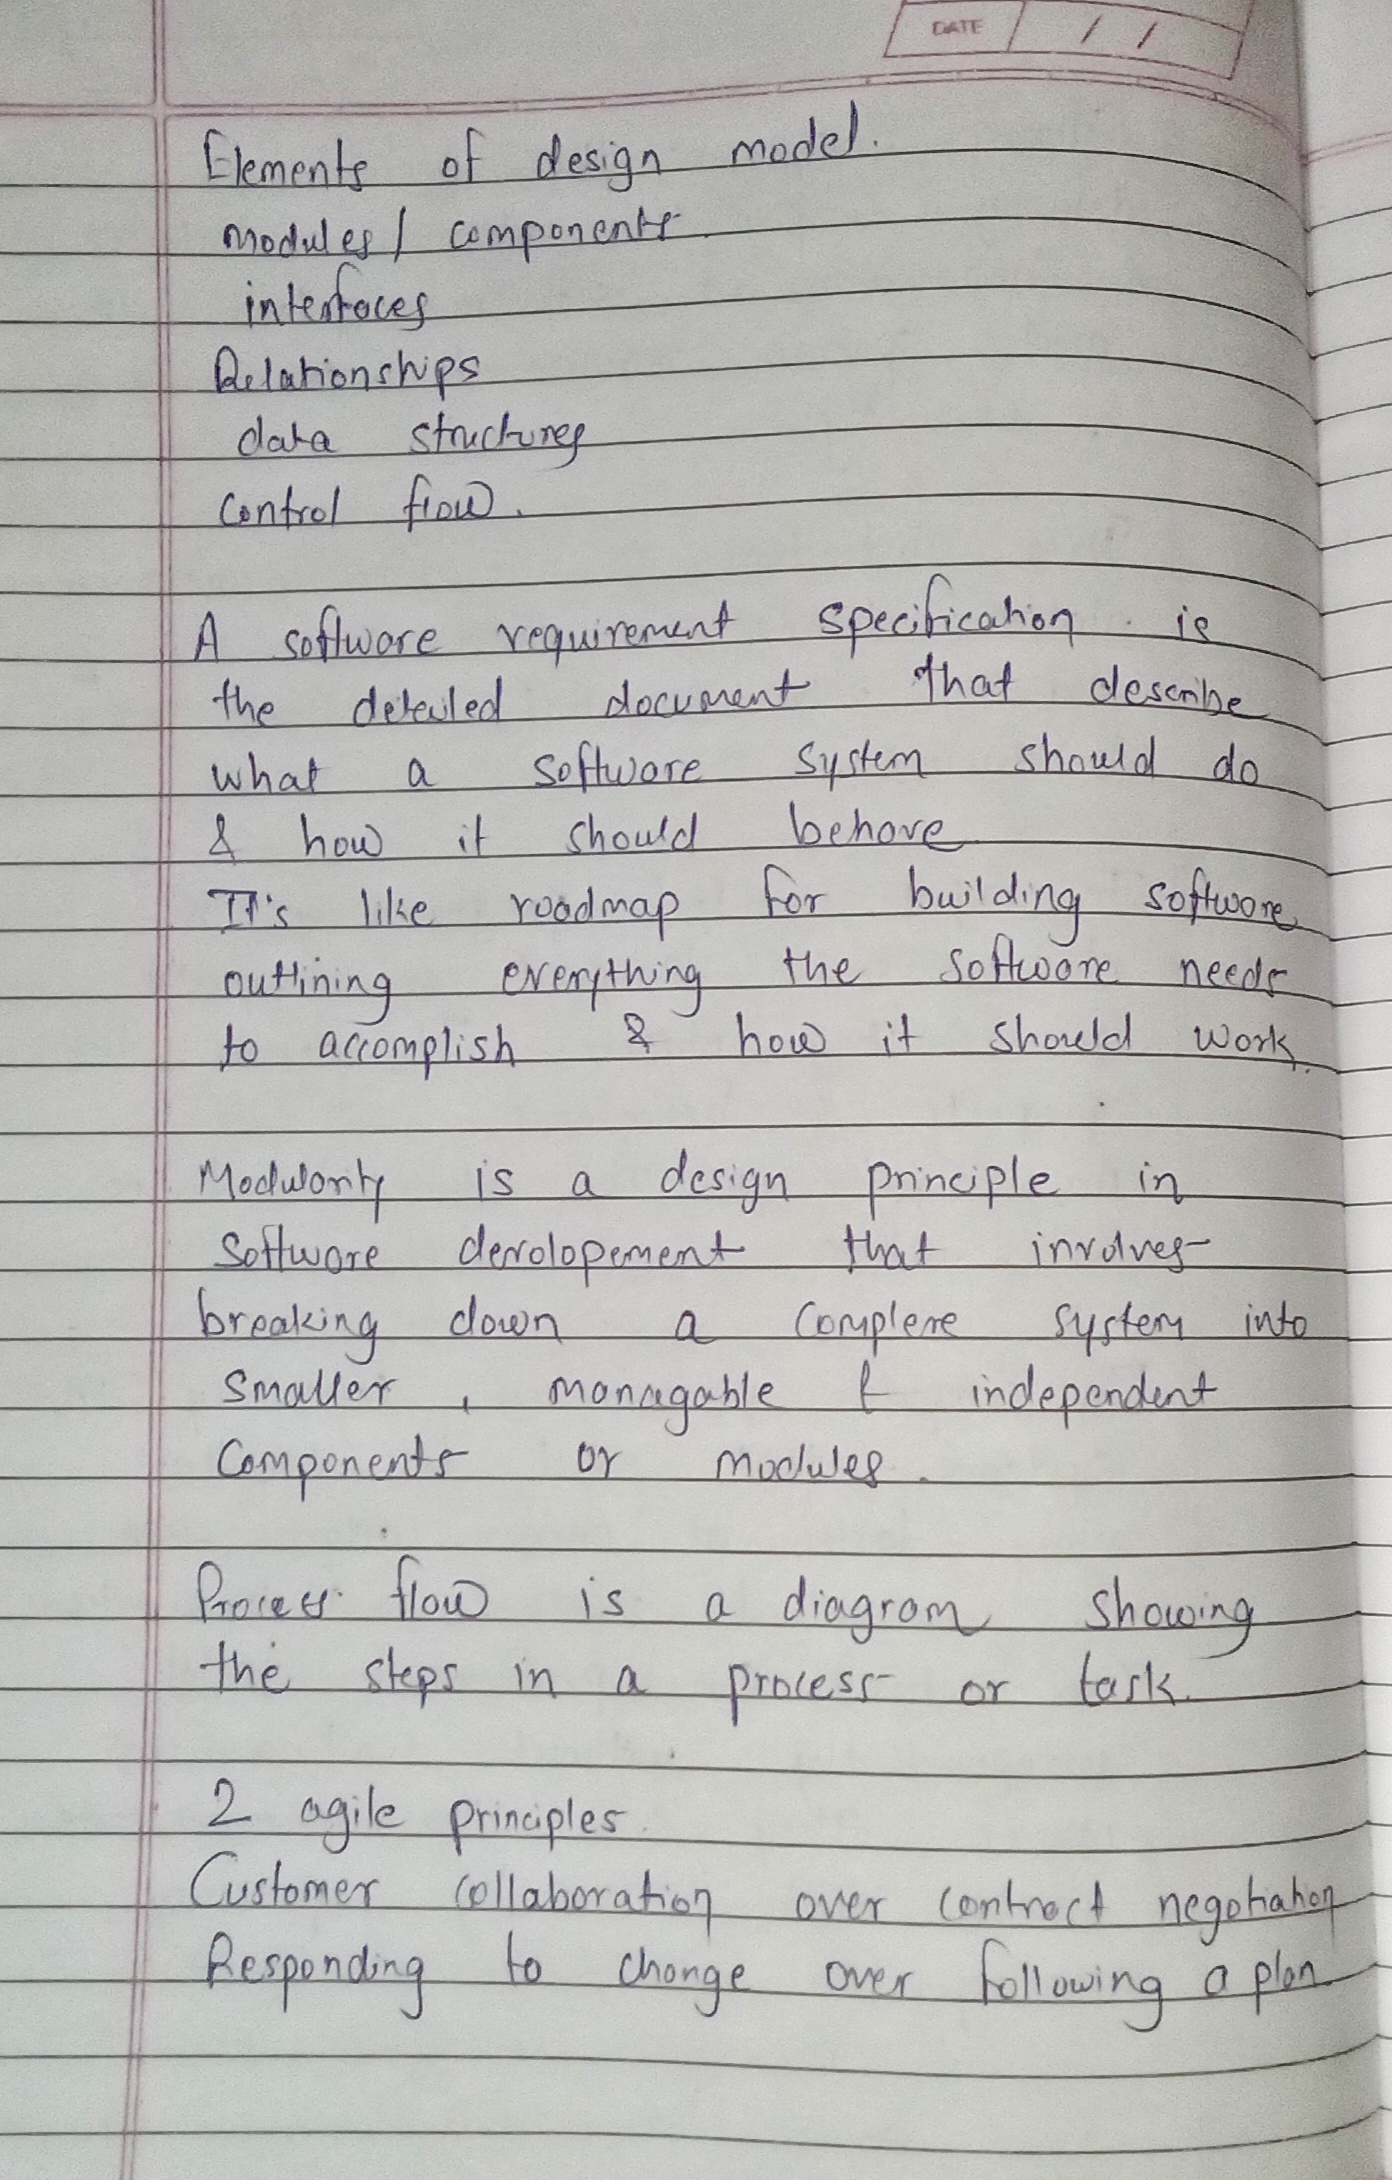 DATE / /
Elements of design model.
modules / components
interfaces
Relationships
data structures
Control flow.
A software requirement specification is
the detailed document that describe
what a software system should do
& how it should behave
It's like roadmap for building software
outlining everything the software needs
to accomplish & how it should work.
Modularity is a design principle in
software devolopement that involves
breaking down a complexe system into
smaller, managable & independent
Components or modules.
Process flow is a diagram showing
the steps in a process or task.
2 agile principles.
Customer collaboration over contract negotiation
Responding to change over following a plan